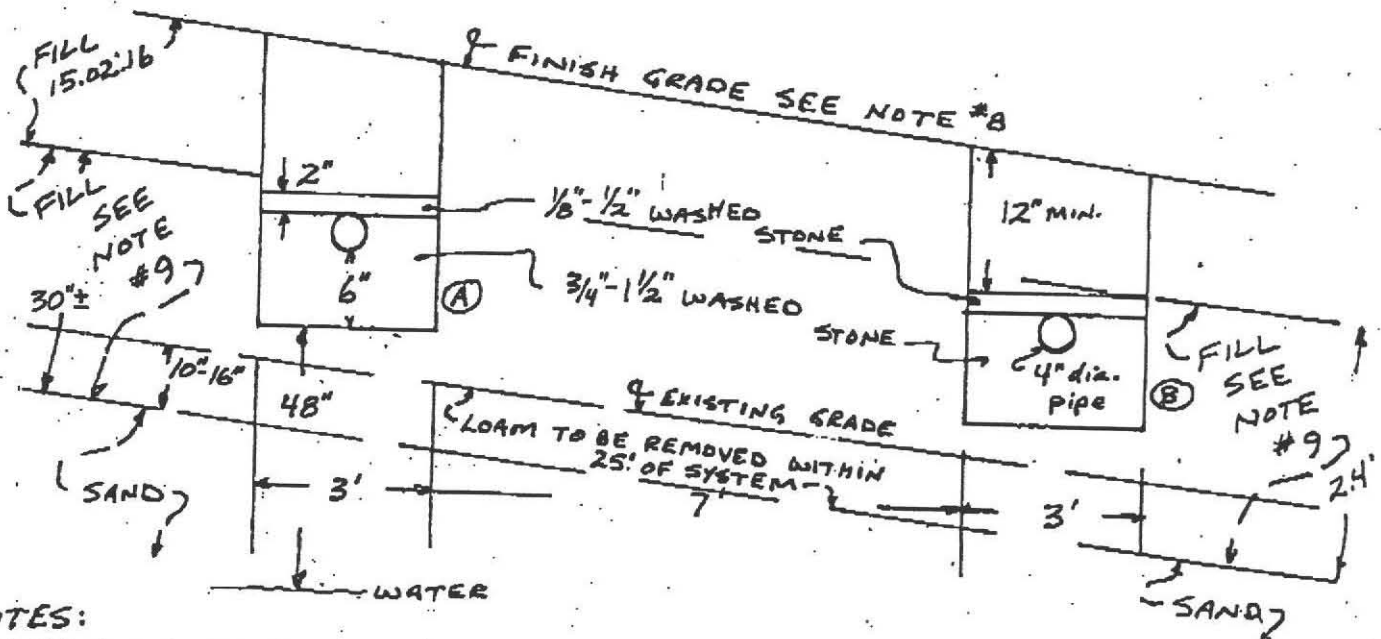 FILL
15.02:16
℄ FINISH GRADE SEE NOTE #8
FILL
SEE
NOTE
#9
2"
1/8"-1/2" WASHED
STONE
12" MIN.
6"
A
3/4"-1 1/2" WASHED
STONE
4" dia.
pipe
B
FILL
SEE
NOTE
#9
2.4'
30"±
10"-16"
48"
℄ EXISTING GRADE
LOAM TO BE REMOVED WITHIN
25' OF SYSTEM
SAND
3'
7'
3'
WATER
SAND
NOTES: